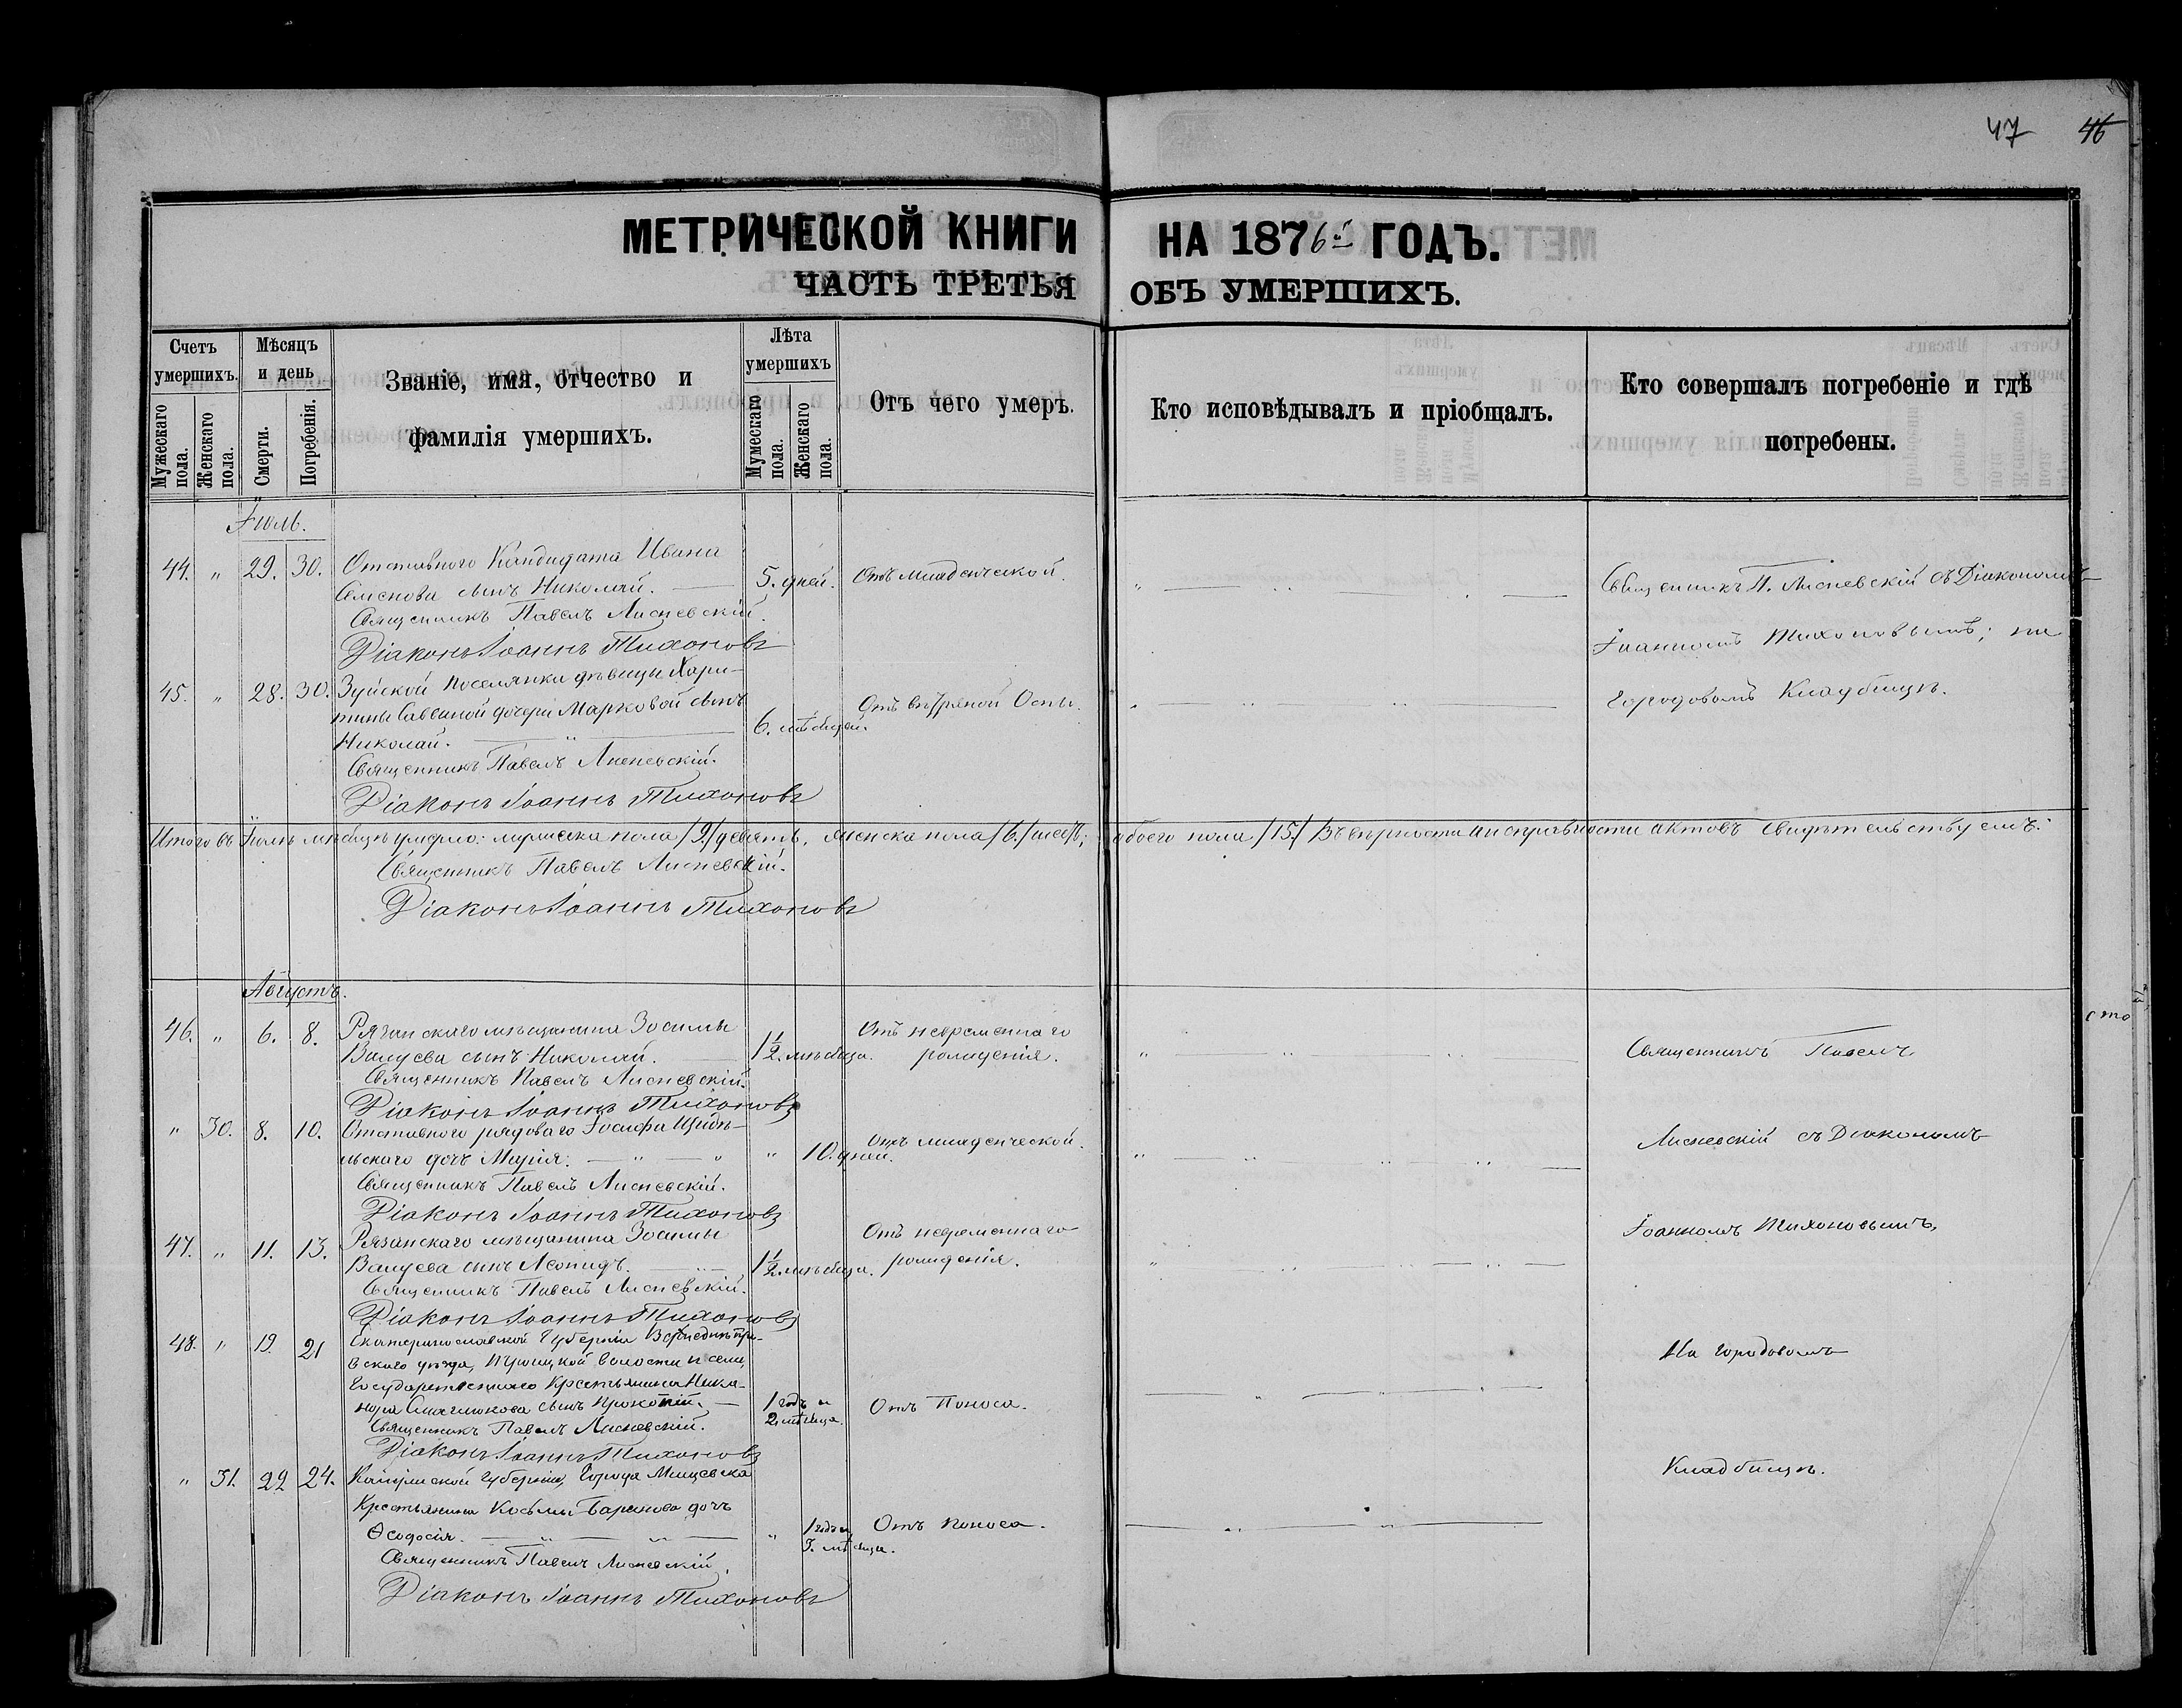 47 46
МЕТРИЧЕСКОЙ КНИГИ НА 1876й ГОДЪ.
ЧАСТЬ ТРЕТЬЯ ОБЪ УМЕРШИХЪ.
Счетъ умершихъ.
Мужескаго пола.
Женскаго пола.
Мѣсяцъ и день
Смерти.
Погребенія.
Званіе, имя, отчество и
фамилія умершихъ.
Лѣта умершихъ
Мужескаго пола.
Женскаго пола.
Отъ чего умеръ.
Кто исповѣдывалъ и пріобщалъ.
Кто совершалъ погребеніе и гдѣ
погребены.
Іюль.
44. " 29. 30. Отставного Кандидата Ивана
Семенова сынъ Николай. 5. дней. Отъ младенческой.
Священникъ Павелъ Лисневскій.
Діаконъ Іоаннъ Тихоновъ
Священникъ П. Лисневскій съ Діакономъ
Іоанномъ Тихоновымъ; на
Городовомъ Кладбищѣ.
45. " 28. 30. Зуйской поселянки дѣвицы Хари-
тины Саввиной дочери Марковой сынъ
Николай. 6. мѣсяцей. Отъ вѣтряной Оспы.
Священникъ Павелъ Лисневскій.
Діаконъ Іоаннъ Тихоновъ
Итого въ Іюлѣ мѣсяцѣ умерло: мужеска пола /9./ девять, женска пола /6./ шесть; обоего пола /15./ Въ вѣрности и исправности актовъ свидѣтельствуемъ:
Священникъ Павелъ Лисневскій.
Діаконъ Іоаннъ Тихоновъ
Августъ.
46. " 6. 8. Рязанскаго мѣщанина Зосимы
Валуева сынъ Николай. 1 1/2 мѣсяца. Отъ невременнаго рожденія.
Священникъ Павелъ Лисневскій.
Діаконъ Іоаннъ Тихоновъ
" 30. 8. 10. Отставного рядоваго Іосифа
льскаго дочь Марія. " 10. дней. Отъ младенческой.
Священникъ Павелъ Лисневскій.
Діаконъ Іоаннъ Тихоновъ
47. " 11. 13. Рязанскаго мѣщанина Зосимы
Валуева сынъ Леонидъ. 1 1/2 мѣсяца. Отъ невременнаго рожденія.
Священникъ Павелъ Лисневскій.
Діаконъ Іоаннъ Тихоновъ
48. " 19. 21 Екатеринославской Губерніи
вскаго уѣзда, Троицкой волости и села,
Государственнаго Крестьянина Ника-
нора сынъ Прокопій. 1 годъ и 2 мѣсяца. Отъ Поноса.
Священникъ Павелъ Лисневскій.
Діаконъ Іоаннъ Тихоновъ
" 31. 22 24. Калужской Губерніи, Города Мещевска
Крестьянина Косьмы Баранова дочь
Ѳеодосія. " 1 годъ и мѣсяца. Отъ поноса.
Священникъ Павелъ Лисневскій.
Діаконъ Іоаннъ Тихоновъ
Священникъ Павелъ
Лисневскій съ Діакономъ
Іоанномъ Тихоновымъ,
На городовомъ
Кладбищѣ.
сто